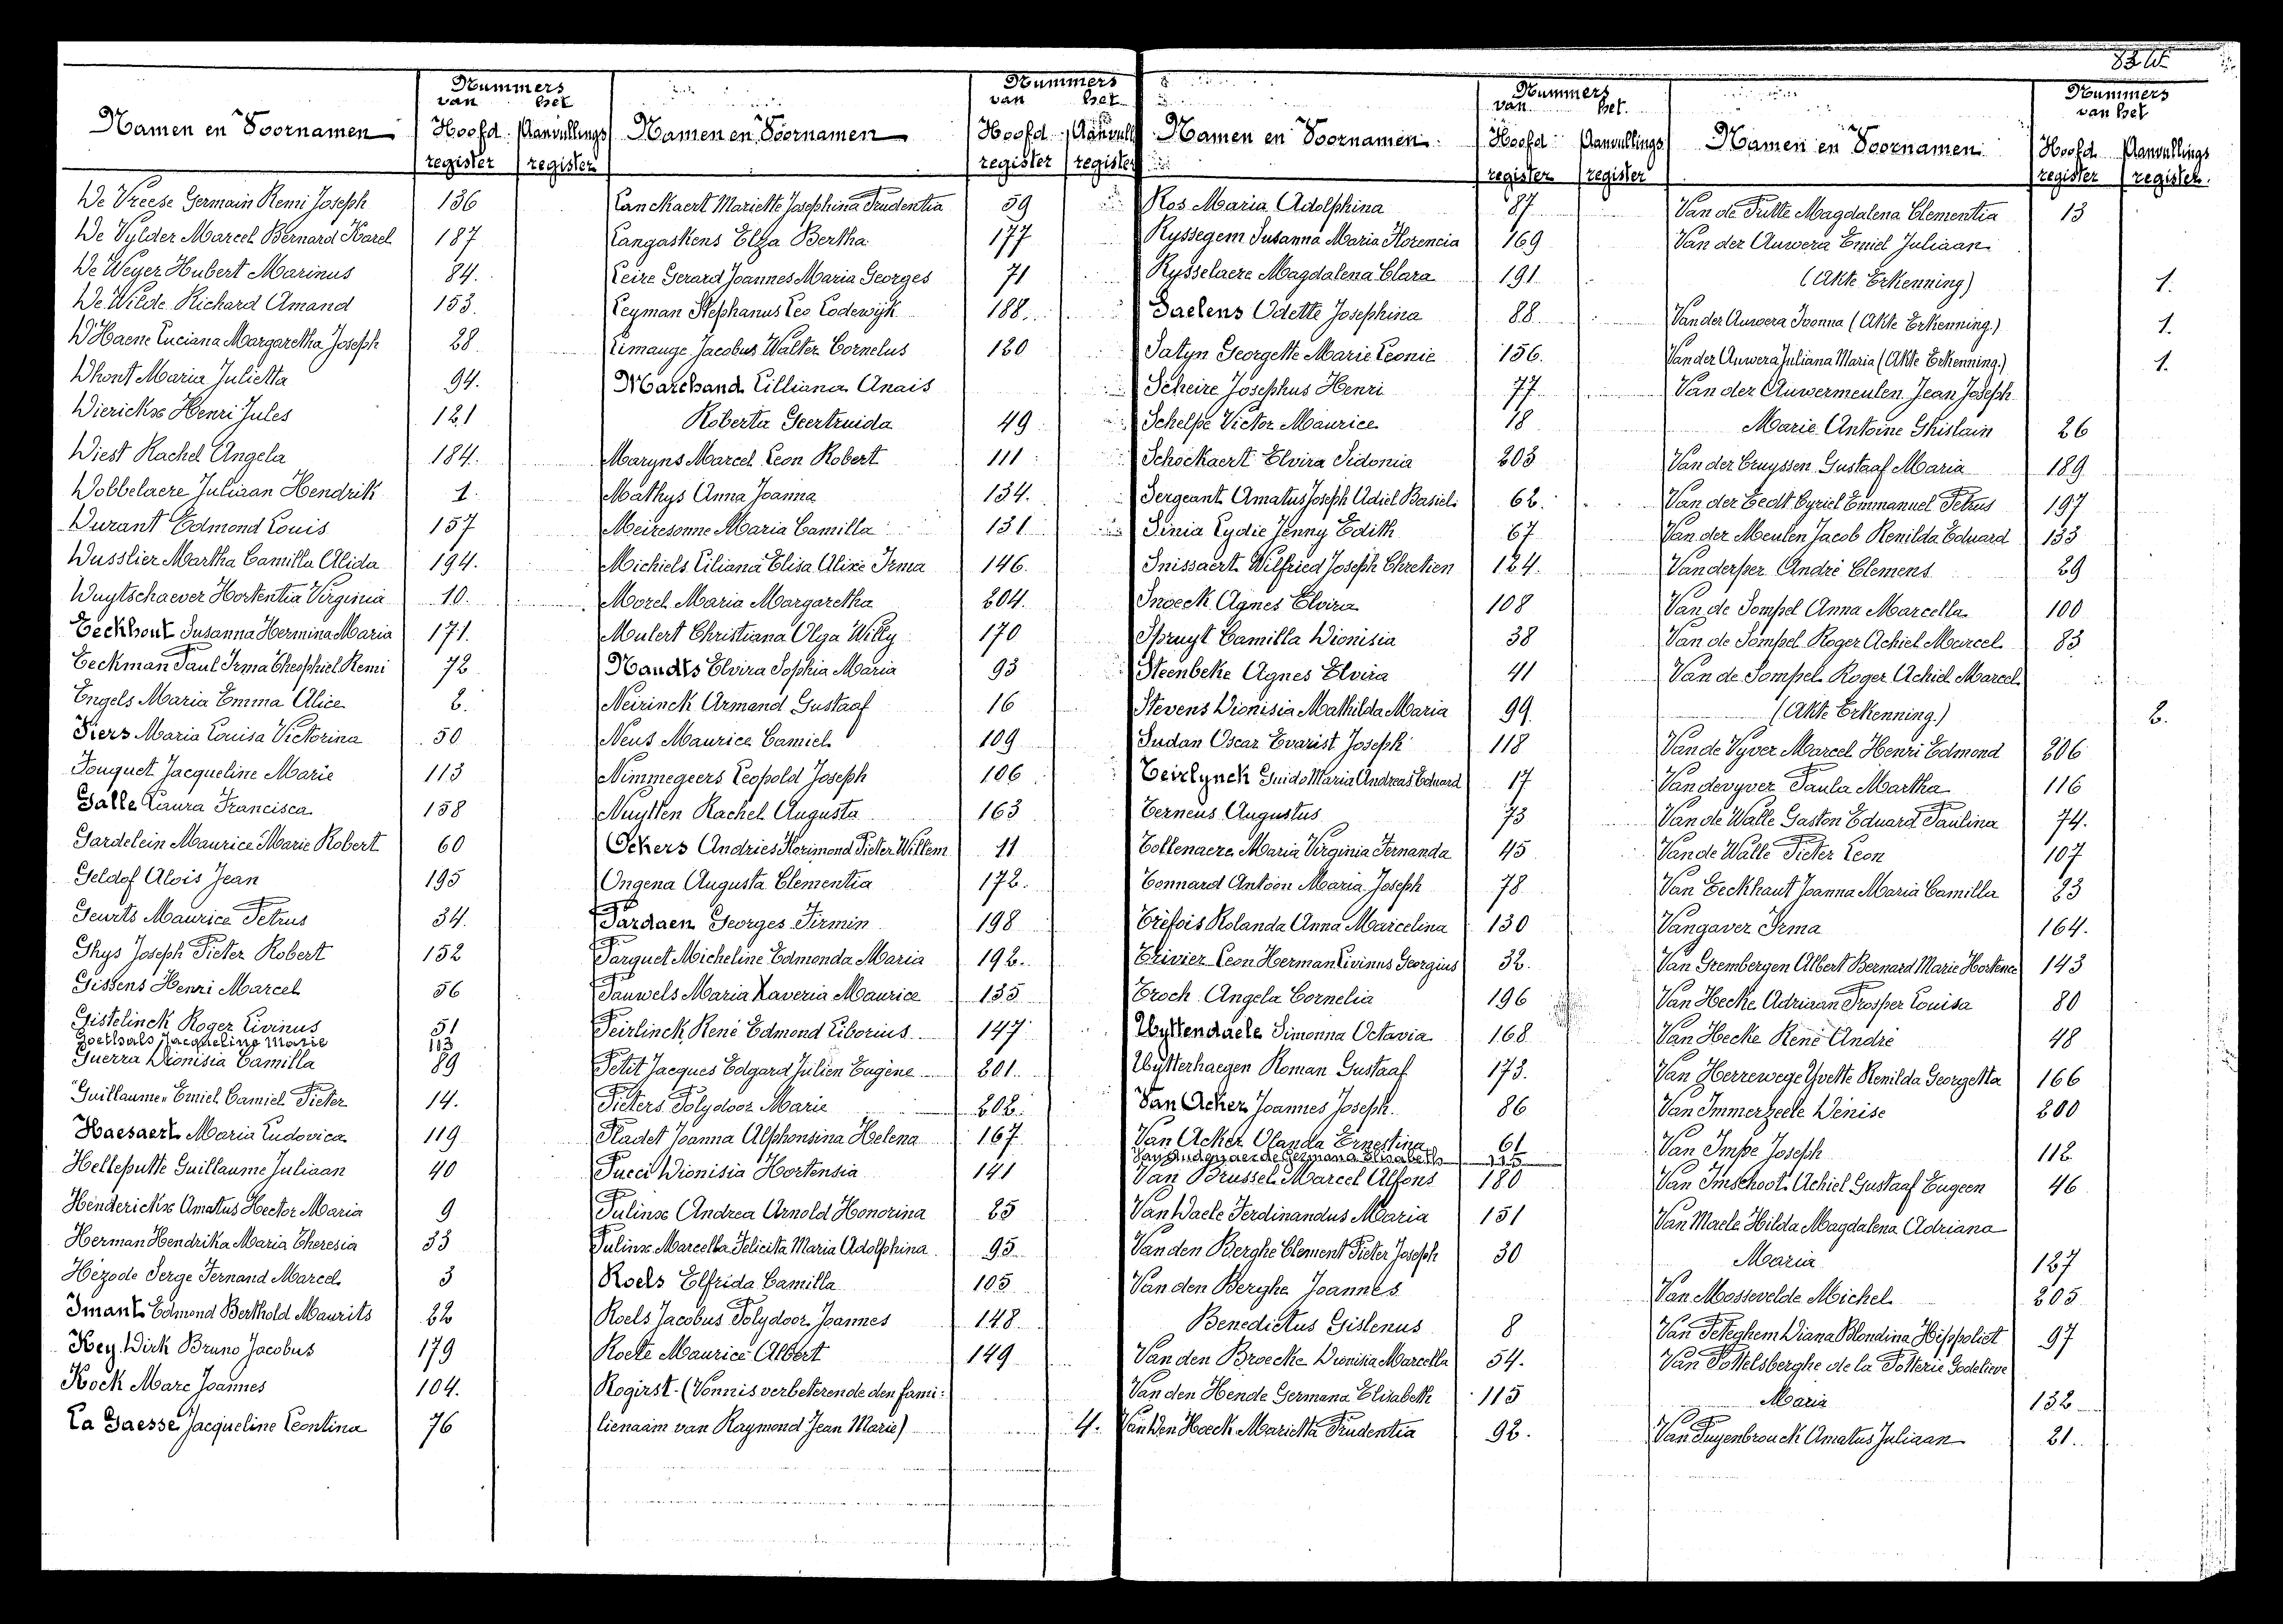 Namen en Voornamen
Nummers
van het
Hoofd register
Aanvullings register
De Vreese Germain Remi Joseph 136
De Vylder Marcel Bernard Karel 187
De Weyer Hubert Marinus 84.
De Wilde Richard Amand 153.
D'Haene Luciana Margaretha Joseph 28
Dhont Maria Julietta 94.
Dierickx Henri Jules 121
Diest Rachel Angela 184.
Dobbelaere Juliaan Hendrik 1.
Durant Edmond Louis 157
Dusslier Martha Camilla Alida 194.
Duytschaever Hortentia Virginia 10.
Eeckhout Susanna Hermina Maria 171.
Eeckman Paul Irma Theophiel Remi 72
Engels Maria Emma Alice 2.
Fiers Maria Louisa Victorina 50
Fouquet Jacqueline Marie 113
Galle Laura Francisca 158
Gardelein Maurice Marie Robert 60
Geldof Alois Jean 195
Geurts Maurice Petrus 34.
Ghys Joseph Pieter Robert 152
Gissens Henri Marcel 56
Gistelinck Roger Livinus 51
Goethals Jacqueline Marie 113
Guerra Dionisia Camilla 89
Guillaume Emiel Camiel Pieter 14.
Haesaert Maria Ludovica 119
Helleputte Guillaume Juliaan 40
Henderickx Amatus Hector Maria 9
Herman Hendrika Maria Theresia 33
Hézode Serge Fernand Marcel 3
Imant Edmond Berthold Maurits 22
Key Dirk Bruno Jacobus 179
Kock Marc Joannes 104.
La Gaesse Jacqueline Leontina 76
Namen en Voornamen
Nummers
van het
Hoofd register
Aanvull register
Lanckaert Mariette Josephina Prudentia 59
Langaskens Elza Bertha 177
Leire Gerard Joannes Maria Georges 71
Leyman Stephanus Leo Lodewijk 188.
Limauge Jacobus Walter Cornelus 120
Marchand Lilliana Anais
Roberta Geertruida 49
Maryns Marcel Leon Robert 111
Mathys Anna Joanna 134.
Meiresonne Maria Camilla 131
Michiels Liliana Elisa Alixe Irma 146.
Morel Maria Margaretha 204.
Mulert Christiana Olga Willy 170
Nandts Elvira Sophia Maria 93
Neirinck Armand Gustaaf 16
Neus Maurice Camiel 109
Nimmegeers Leopold Joseph 106
Nuytten Rachel Augusta 163
Ockers Andries Florimond Pieter Willem 11
Ongena Augusta Clementia 172.
Pardaen Georges Firmin 198
Parquet Micheline Edmonda Maria 192.
Pauwels Maria Xaveria Maurice 135
Peirlinck René Edmond Liborius 147
Petit Jacques Edgard Julien Eugène 201.
Pieters Polydoor Marie 202.
Pladet Joanna Alphonsina Helena 167
Pucci Dionisia Hortensia 141
Pulinx Andrea Arnold Honorina 25
Pulinx Marcella Felicita Maria Adolphina 95
Roels Elfrida Camilla 105
Roels Jacobus Polydoor Joannes 148
Roete Maurice Albert 149
Rogirst (Vonnis verbeterende den fami:
lienaam van Raymond Jean Marie) 4.
Namen en Voornamen
Nummers
van het.
Hoofd register
Aanvullings register
Ros Maria Adolphina 87
Ryssegem Susanna Maria Florencia 169
Rysselaere Magdalena Clara 191
Saelens Odette Josephina 88
Satyn Georgette Marie Leonie 156.
Scheire Josephus Henri 77
Schelpe Victor Maurice 18
Schockaert Elvira Sidonia 203
Sergeant Amatus Joseph Adiel Basiel 62.
Sinia Lydie Jenny Edith 67
Snissaert Wilfried Joseph Chretien 124.
Snoeck Agnes Elvira 108
Spruyt Camilla Dionisia 38
Steenbeke Agnes Elvira 41
Stevens Dionisia Mathilda Maria 99.
Sudan Oscar Evarist Joseph 118
Teirlynck Guido Maria Andreas Eduard 17
Terneus Augustus 73
Tollenaere Maria Virginia Fernanda 45
Tonnard Antoon Maria Joseph 78
Tréfois Rolanda Anna Marcelina 130
Trivier Leon Herman Livinus Georgius 32.
Troch Angela Cornelia 196
Uyttendaele Simonna Octavia 168
Uytterhaegen Roman Gustaaf 173.
Van Acker Joannes Joseph 86
Van Acker Olanda Ernestina 61
Van Audenaerde Germana Elisabeth 115
Van Brussel Marcel Alfons 180
Van Daele Ferdinandus Maria 151
Van den Berghe Clement Pieter Joseph 30
Van den Berghe Joannes
Benedictus Gislenus 8
Van den Broecke Dionisia Marcella 54.
Van den Hende Germana Elisabeth 115
Van Den Hoeck Marietta Prudentia 92.
Namen en Voornamen
Nummers
van het
Hoofd register
Aanvullings register.
Van de Putte Magdalena Clementia 13
Van der Auwera Emiel Juliaan
(Akte Erkenning) 1.
Van der Auwera Ivonna (Akte Erkenning.) 1.
Van der Auwera Juliana Maria (Akte Erkenning.) 1.
Van der Auwermeulen Jean Joseph
Marie Antoine Ghislain 26
Van der Cruyssen Gustaaf Maria 189
Van der Eedt Cyriel Emmanuel Petrus 197
Van der Meulen Jacob Renilda Eduard 133
Vanderper André Clemens 29
Van de Sompel Anna Marcella 100
Van de Sompel Roger Achiel Marcel 83
Van de Sompel Roger Achiel Marcel
(Akte Erkenning.) 2.
Van de Vyver Marcel Henri Edmond 206
Vandevyver Paula Martha 116
Van de Walle Gaston Eduard Paulina 74.
Van de Walle Pieter Leon 107
Van Eeckhaut Joanna Maria Camilla 23
Vangaver Irma 164.
Van Grembergen Albert Bernard Marie Hortence 143
Van Hecke Adriaan Prosper Louisa 80
Van Hecke René André 48
Van Herrewege Yvette Renilda Georgetta 166
Van Immerzeele Denise 200
Van Impe Joseph 112
Van Imschoot Achiel Gustaaf Eugeen 46
Van Maele Hilda Magdalena Adriana
Maria 127
Van Mossevelde Michel 205
Van Peteghem Diana Blondina Hippoliet 97
Van Pottelsberghe de la Potterie Godelieve
Maria 132
Van Puyenbrouck Amatus Juliaan 21.